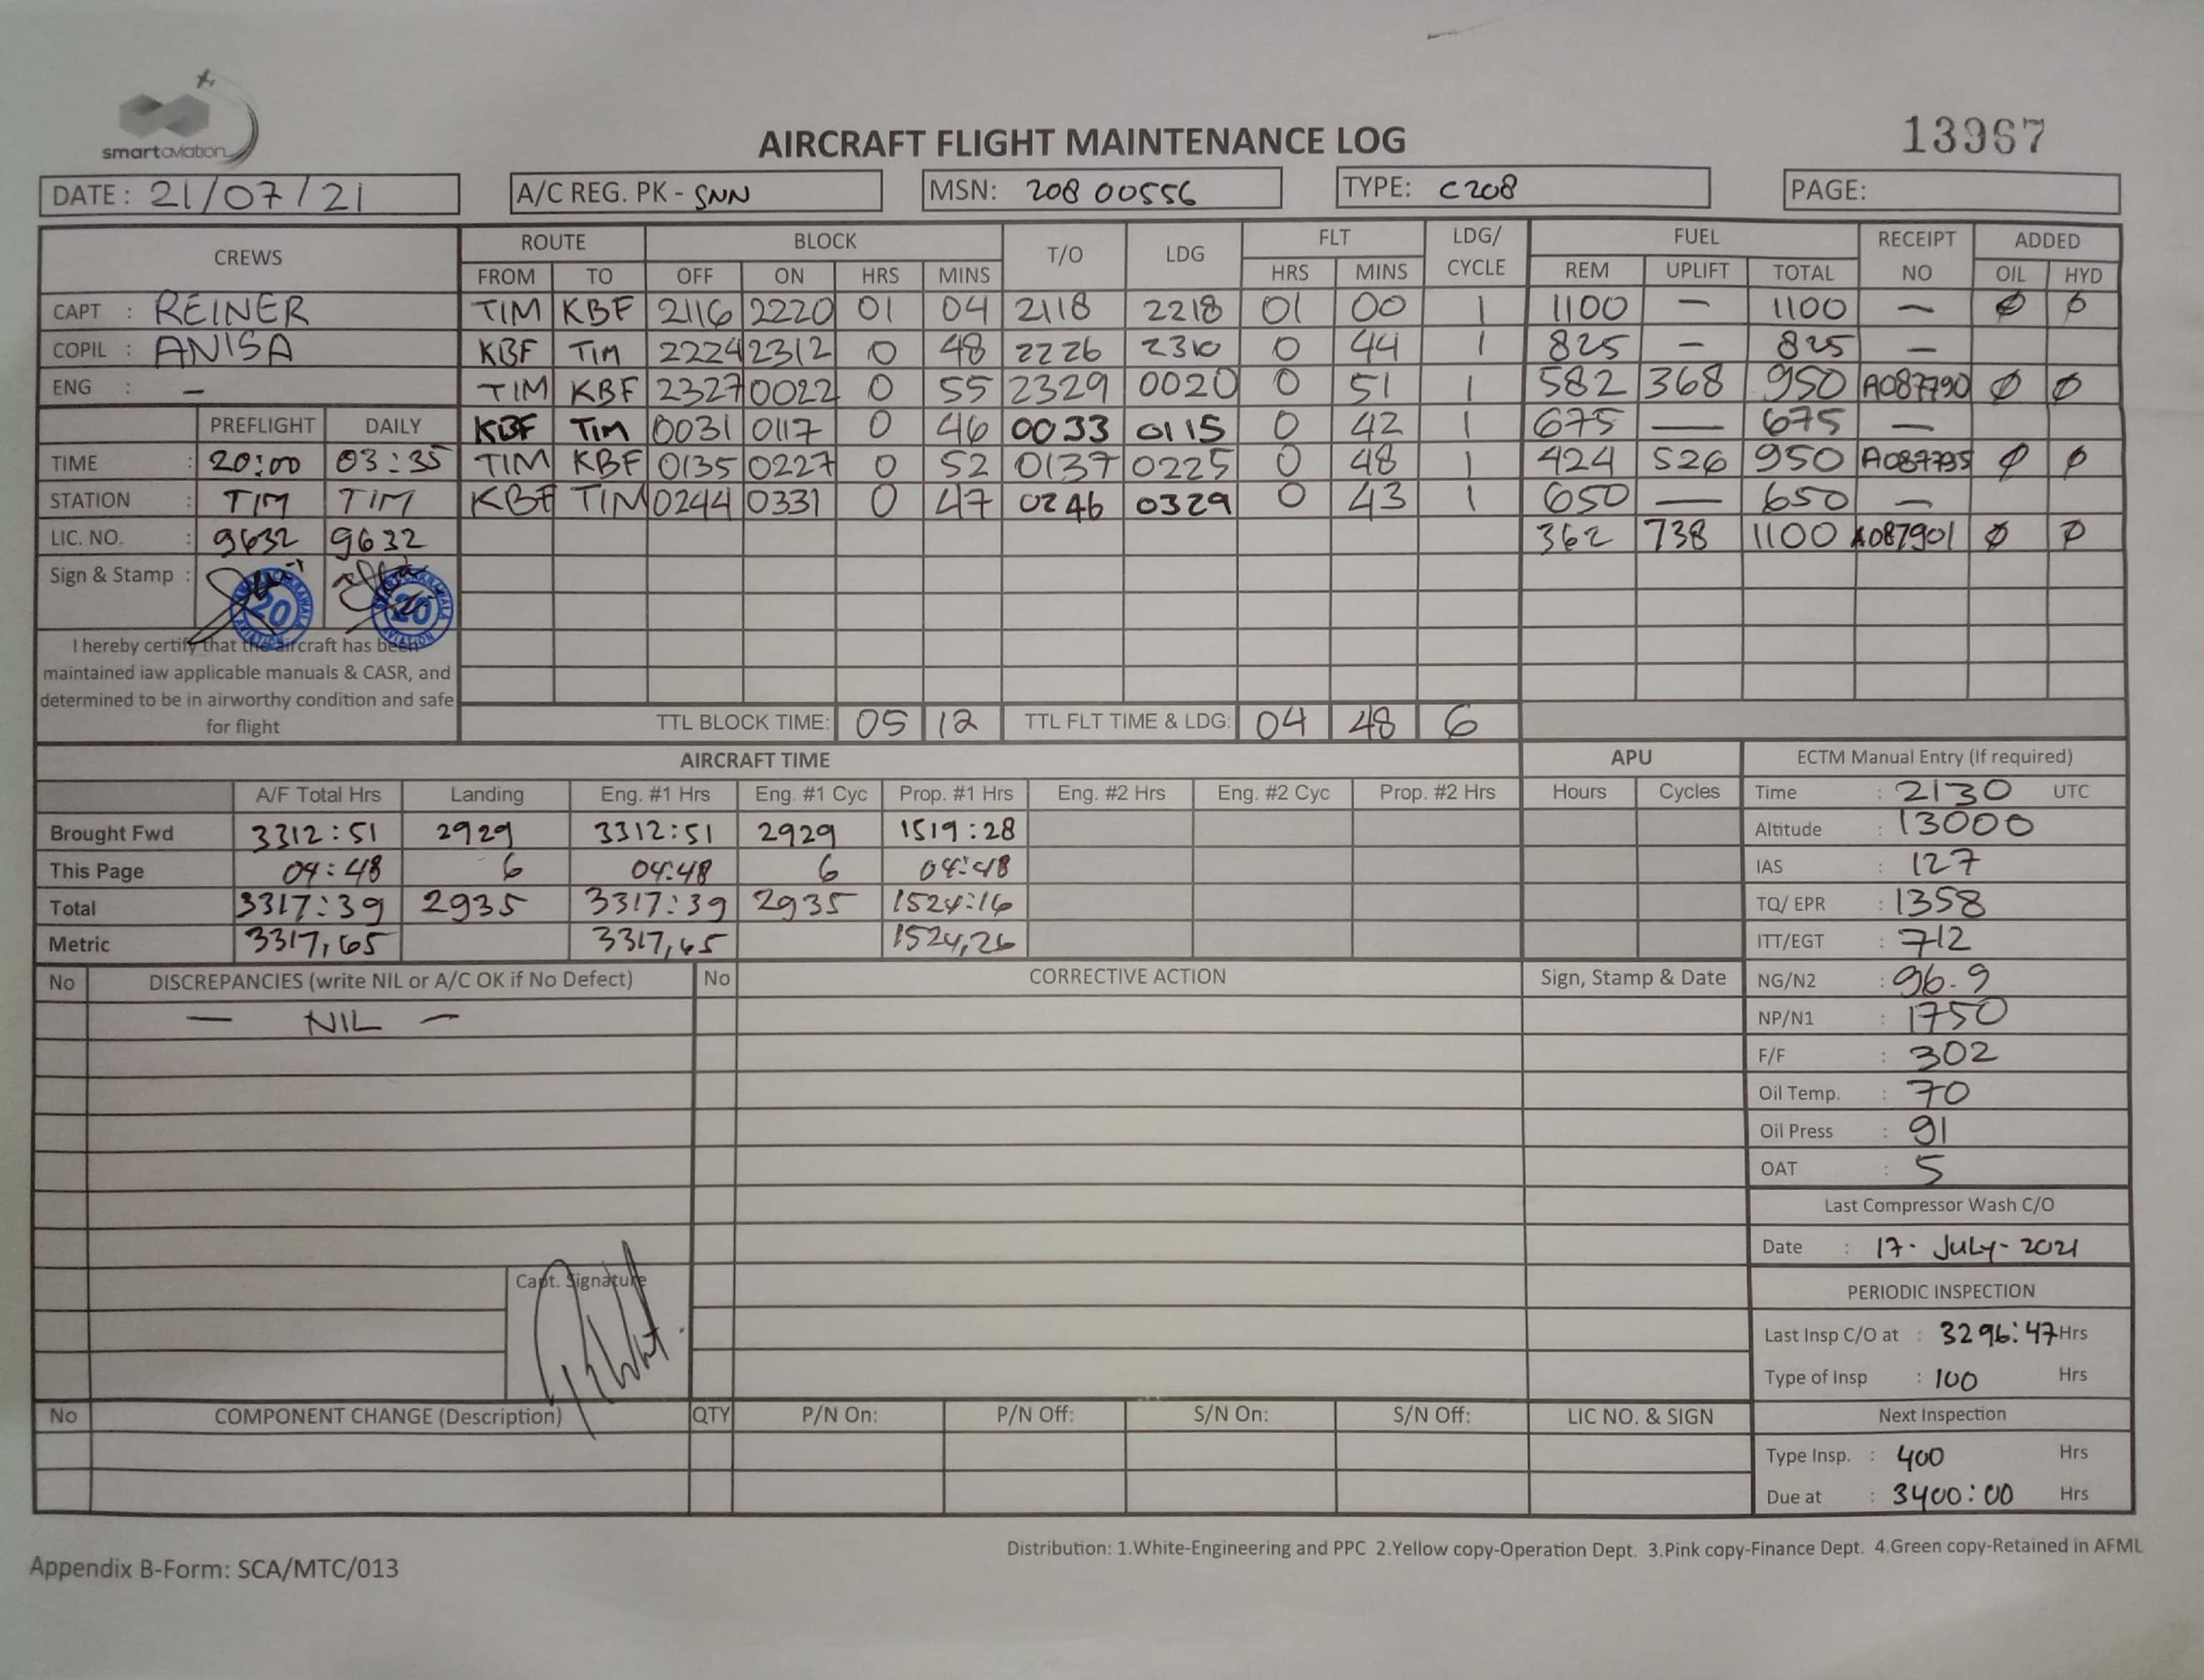 smartaviation
AIRCRAFT FLIGHT MAINTENANCE LOG
13967
DATE : 21/07/21 A/C REG. PK - SNN MSN: 208 00556 TYPE: C208 PAGE:
CREWS ROUTE BLOCK T/O LDG FLT LDG/ CYCLE FUEL RECEIPT NO ADDED
FROM TO OFF ON HRS MINS HRS MINS REM UPLIFT TOTAL OIL HYD
CAPT : REINER TIM KBF 2116 2220 01 04 2118 2218 01 00 1 1100 — 1100 — Ø Ø
COPIL : ANISA KBF TIM 2224 2312 0 48 2226 2310 0 44 1 825 — 825 —
ENG : — TIM KBF 2327 0022 0 55 2329 0020 0 51 1 582 368 950 A087790 Ø Ø
PREFLIGHT DAILY KBF TIM 0031 0117 0 46 0033 0115 0 42 1 675 — 675 —
TIME : 20:00 03:35 TIM KBF 0135 0227 0 52 0137 0225 0 48 1 424 526 950 A087795 Ø Ø
STATION : TIM TIM KBF TIM 0244 0331 0 47 0246 0329 0 43 1 650 — 650 —
LIC. NO. : 9632 9632 362 738 1100 A087901 Ø Ø
Sign & Stamp :
20 20
I hereby certify that the aircraft has been
maintained iaw applicable manuals & CASR, and
determined to be in airworthy condition and safe
for flight
TTL BLOCK TIME: 05 12 TTL FLT TIME & LDG: 04 48 6
AIRCRAFT TIME APU ECTM Manual Entry (If required)
A/F Total Hrs Landing Eng. #1 Hrs Eng. #1 Cyc Prop. #1 Hrs Eng. #2 Hrs Eng. #2 Cyc Prop. #2 Hrs Hours Cycles Time : 2130 UTC
Brought Fwd 3312:51 2929 3312:51 2929 1519:28 Altitude : 13000
This Page 04:48 6 04:48 6 04:48 IAS : 127
Total 3317:39 2935 3317:39 2935 1524:16 TQ/ EPR : 1358
Metric 3317,65 3317,65 1524,26 ITT/EGT : 712
No DISCREPANCIES (write NIL or A/C OK if No Defect) No CORRECTIVE ACTION Sign, Stamp & Date NG/N2 : 96.9
— NIL — NP/N1 : 1750
F/F : 302
Oil Temp. : 70
Oil Press : 91
OAT : 5
Last Compressor Wash C/O
Date : 17- JULY- 2021
Capt. Signature
PERIODIC INSPECTION
Last Insp C/O at : 3296:47 Hrs
Type of Insp : 100 Hrs
No COMPONENT CHANGE (Description) QTY P/N On: P/N Off: S/N On: S/N Off: LIC NO. & SIGN Next Inspection
Type Insp. : 400 Hrs
Due at : 3400:00 Hrs
Distribution: 1.White-Engineering and PPC 2.Yellow copy-Operation Dept. 3.Pink copy-Finance Dept. 4.Green copy-Retained in AFML
Appendix B-Form: SCA/MTC/013